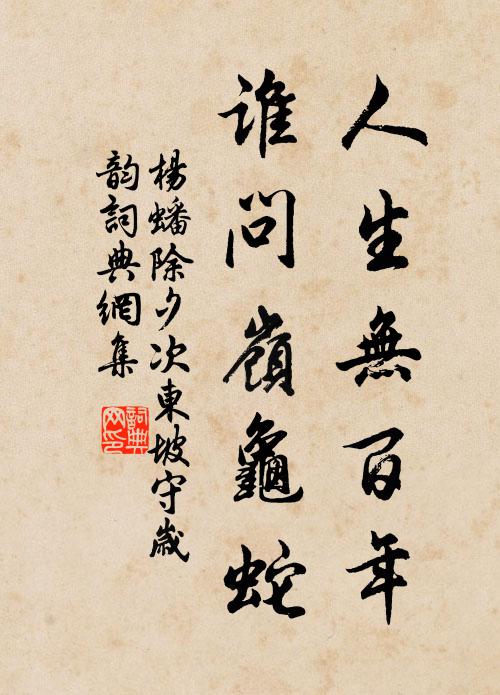 人生無百年
誰問嶺龜蛇
楊蟠除夕次東坡守歲
韵詞典網集
詞典
网印